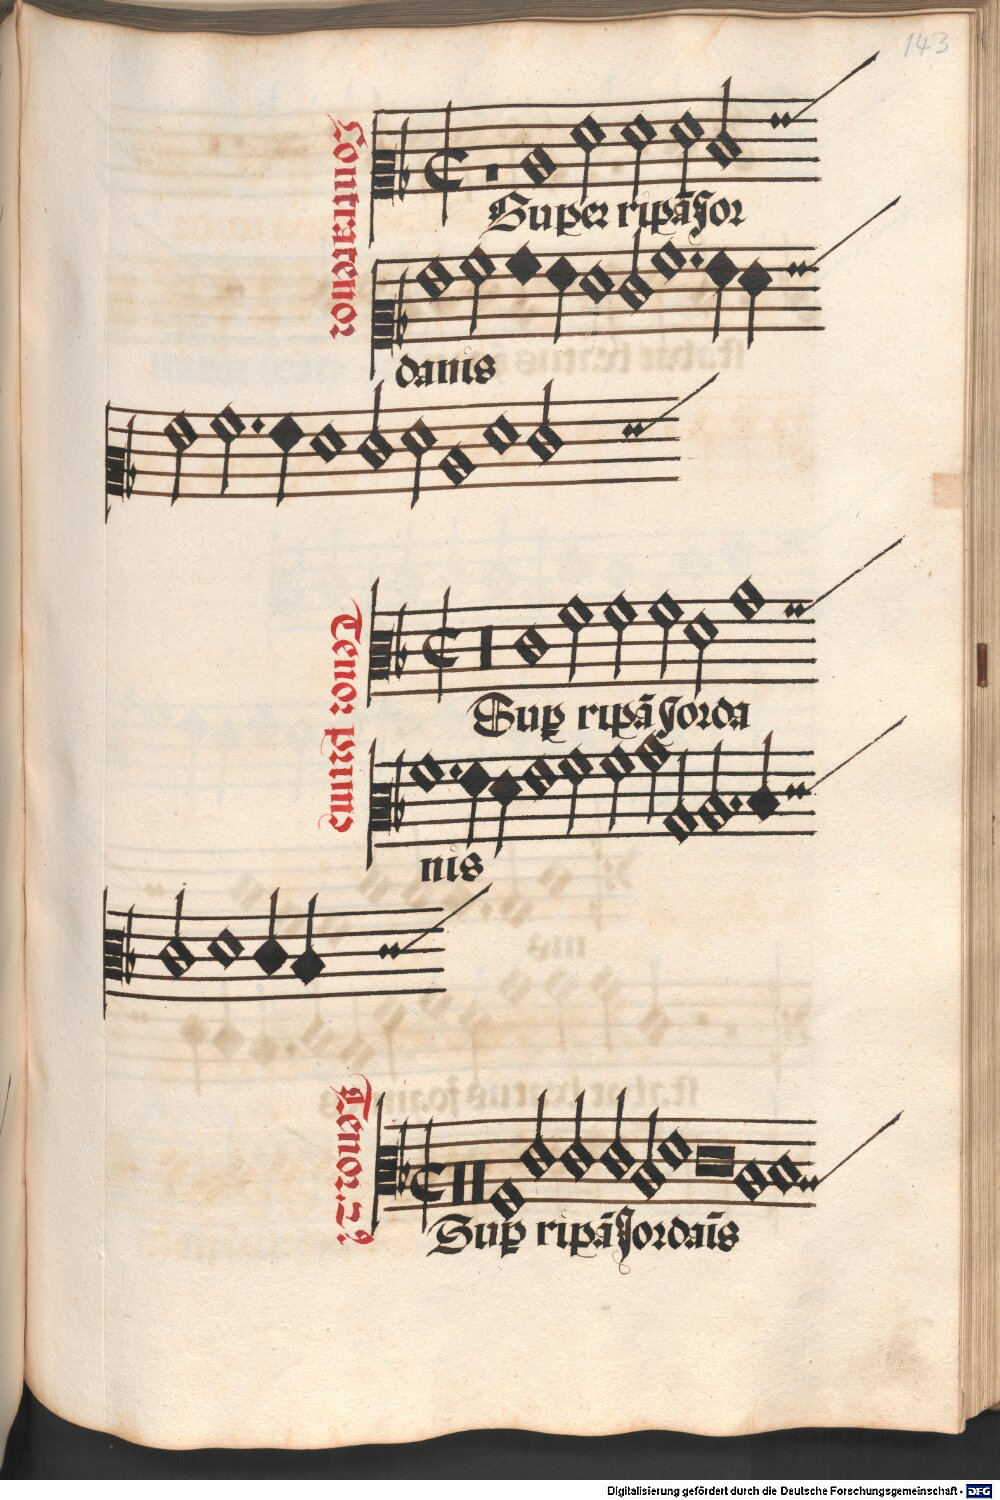 143
Contratenor
Super ripā Jor
danis
Tenor primꝰ
Suꝑ ripā Jorda
nis
Tenor. 2ꝰ
Suꝑ ripā Jordaīs
Digitalisierung gefördert durch die Deutsche Forschungsgemeinschaft - DFG